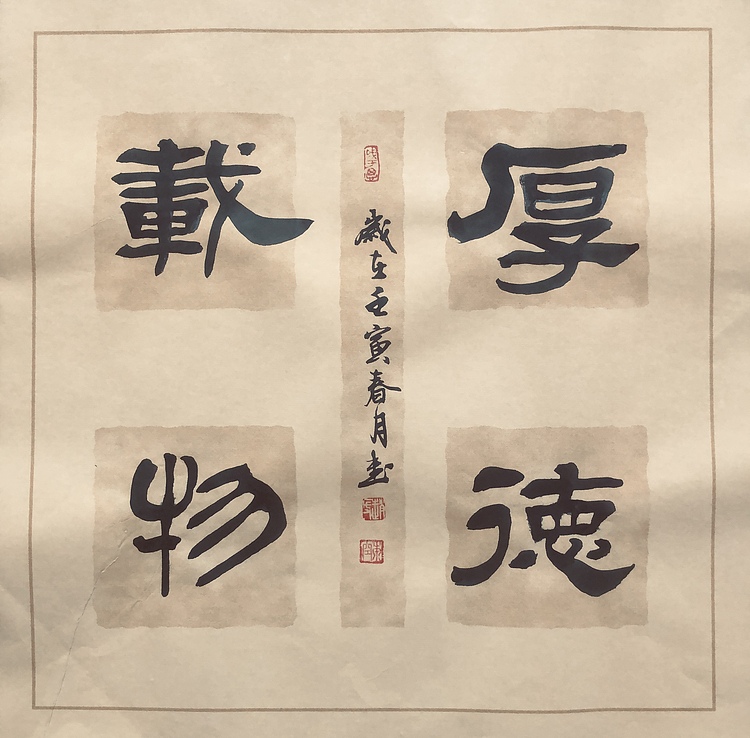 厚德
載物
歲在壬寅春月書